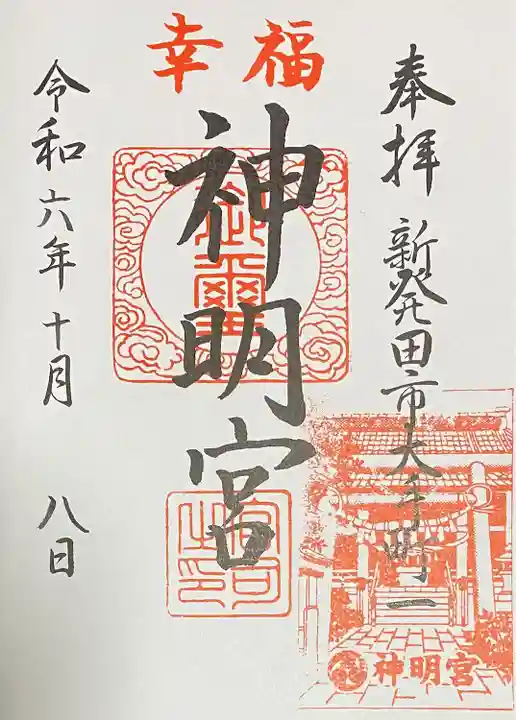 幸福
奉拝
新発田市大手町一
神明宮
令和六年十月 八日
御璽
宮司之印
神明宮